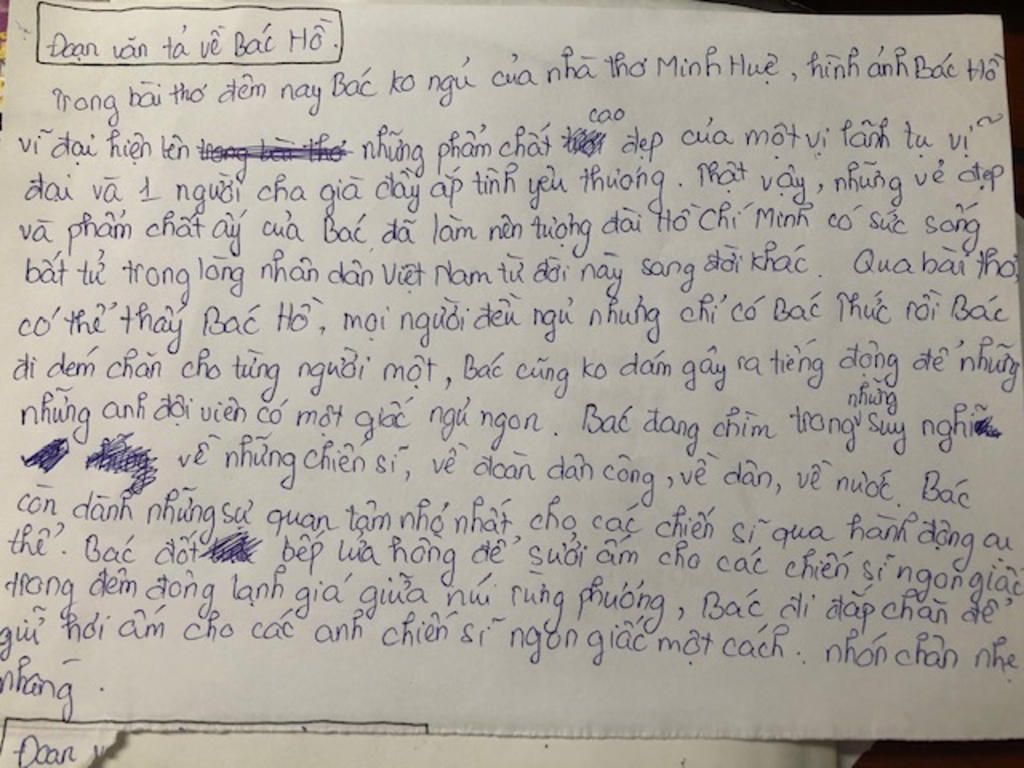 Đoạn văn tả về Bác Hồ.
Trong bài thơ đêm nay Bác ko ngủ của nhà thơ Minh Huệ, hình ảnh Bác Hồ
vĩ đại hiện lên trong bài thơ những phẩm chất cao đẹp của một vị lãnh tụ vị
đại và 1 người cha già đầy ắp tình yêu thương. Thật vậy, những vẻ đẹp
và phẩm chất ấy của Bác đã làm nên tượng đài Hồ Chí Minh có sức sống
bất tử trong lòng nhân dân Việt Nam từ đời này sang đời khác. Qua bài thơ,
có thể thấy Bác Hồ, mọi người đều ngủ nhưng chỉ có Bác Thức rồi Bác
đi dém chăn cho từng người một, Bác cũng ko dám gây ra tiếng động để những
những anh đội viên có một giấc ngủ ngon. Bác đang chìm trong những suy nghĩ
về những chiến sĩ, về đoàn dân công, về dân, về nước. Bác
còn dành những sự quan tâm nhỏ nhất cho các chiến sĩ qua hành động cụ
thể. Bác đốt bếp lửa hồng để sưởi ấm cho các chiến sĩ ngon giấc
trong đêm đông lạnh giá giữa núi rừng phương, Bác đi đắp chăn để
giữ hơi ấm cho các anh chiến sĩ ngon giấc một cách. nhón chân nhẹ
nhàng.
Đoạn